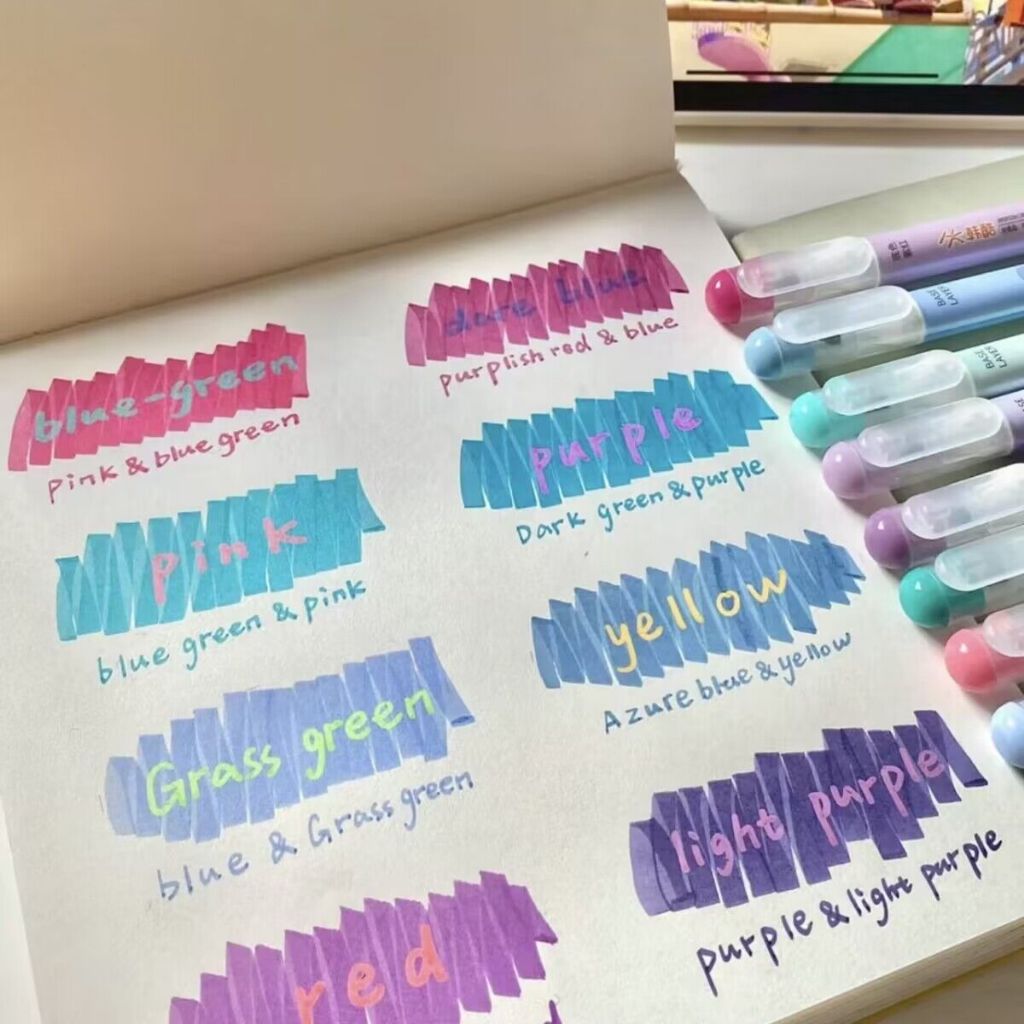 blue-green
pink & blue green
pink
blue green & pink
Grass green
blue & Grass green
red
dare blue
purplish red & blue
purple
Dark green & purple
yellow
Azure blue & yellow
light purple
purple & light purple
韩酷
BASE
LAYER
BASE
LAYER